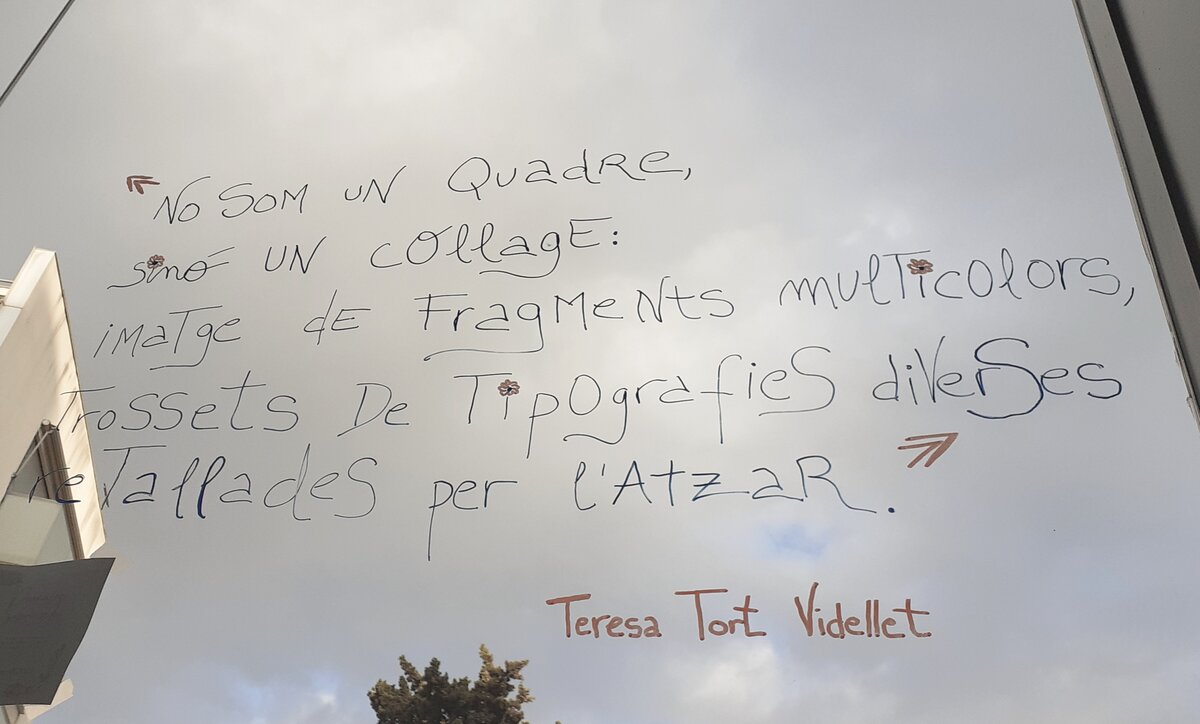 «No SOM UN QuadRE,
sinó UN COllagE:
iMaTge dE FragMeNts mulTicolors,
Trossets De TipOgrafieS diVerSes
reTalladeS per l'AtzaR.»
Teresa Tort Videllet